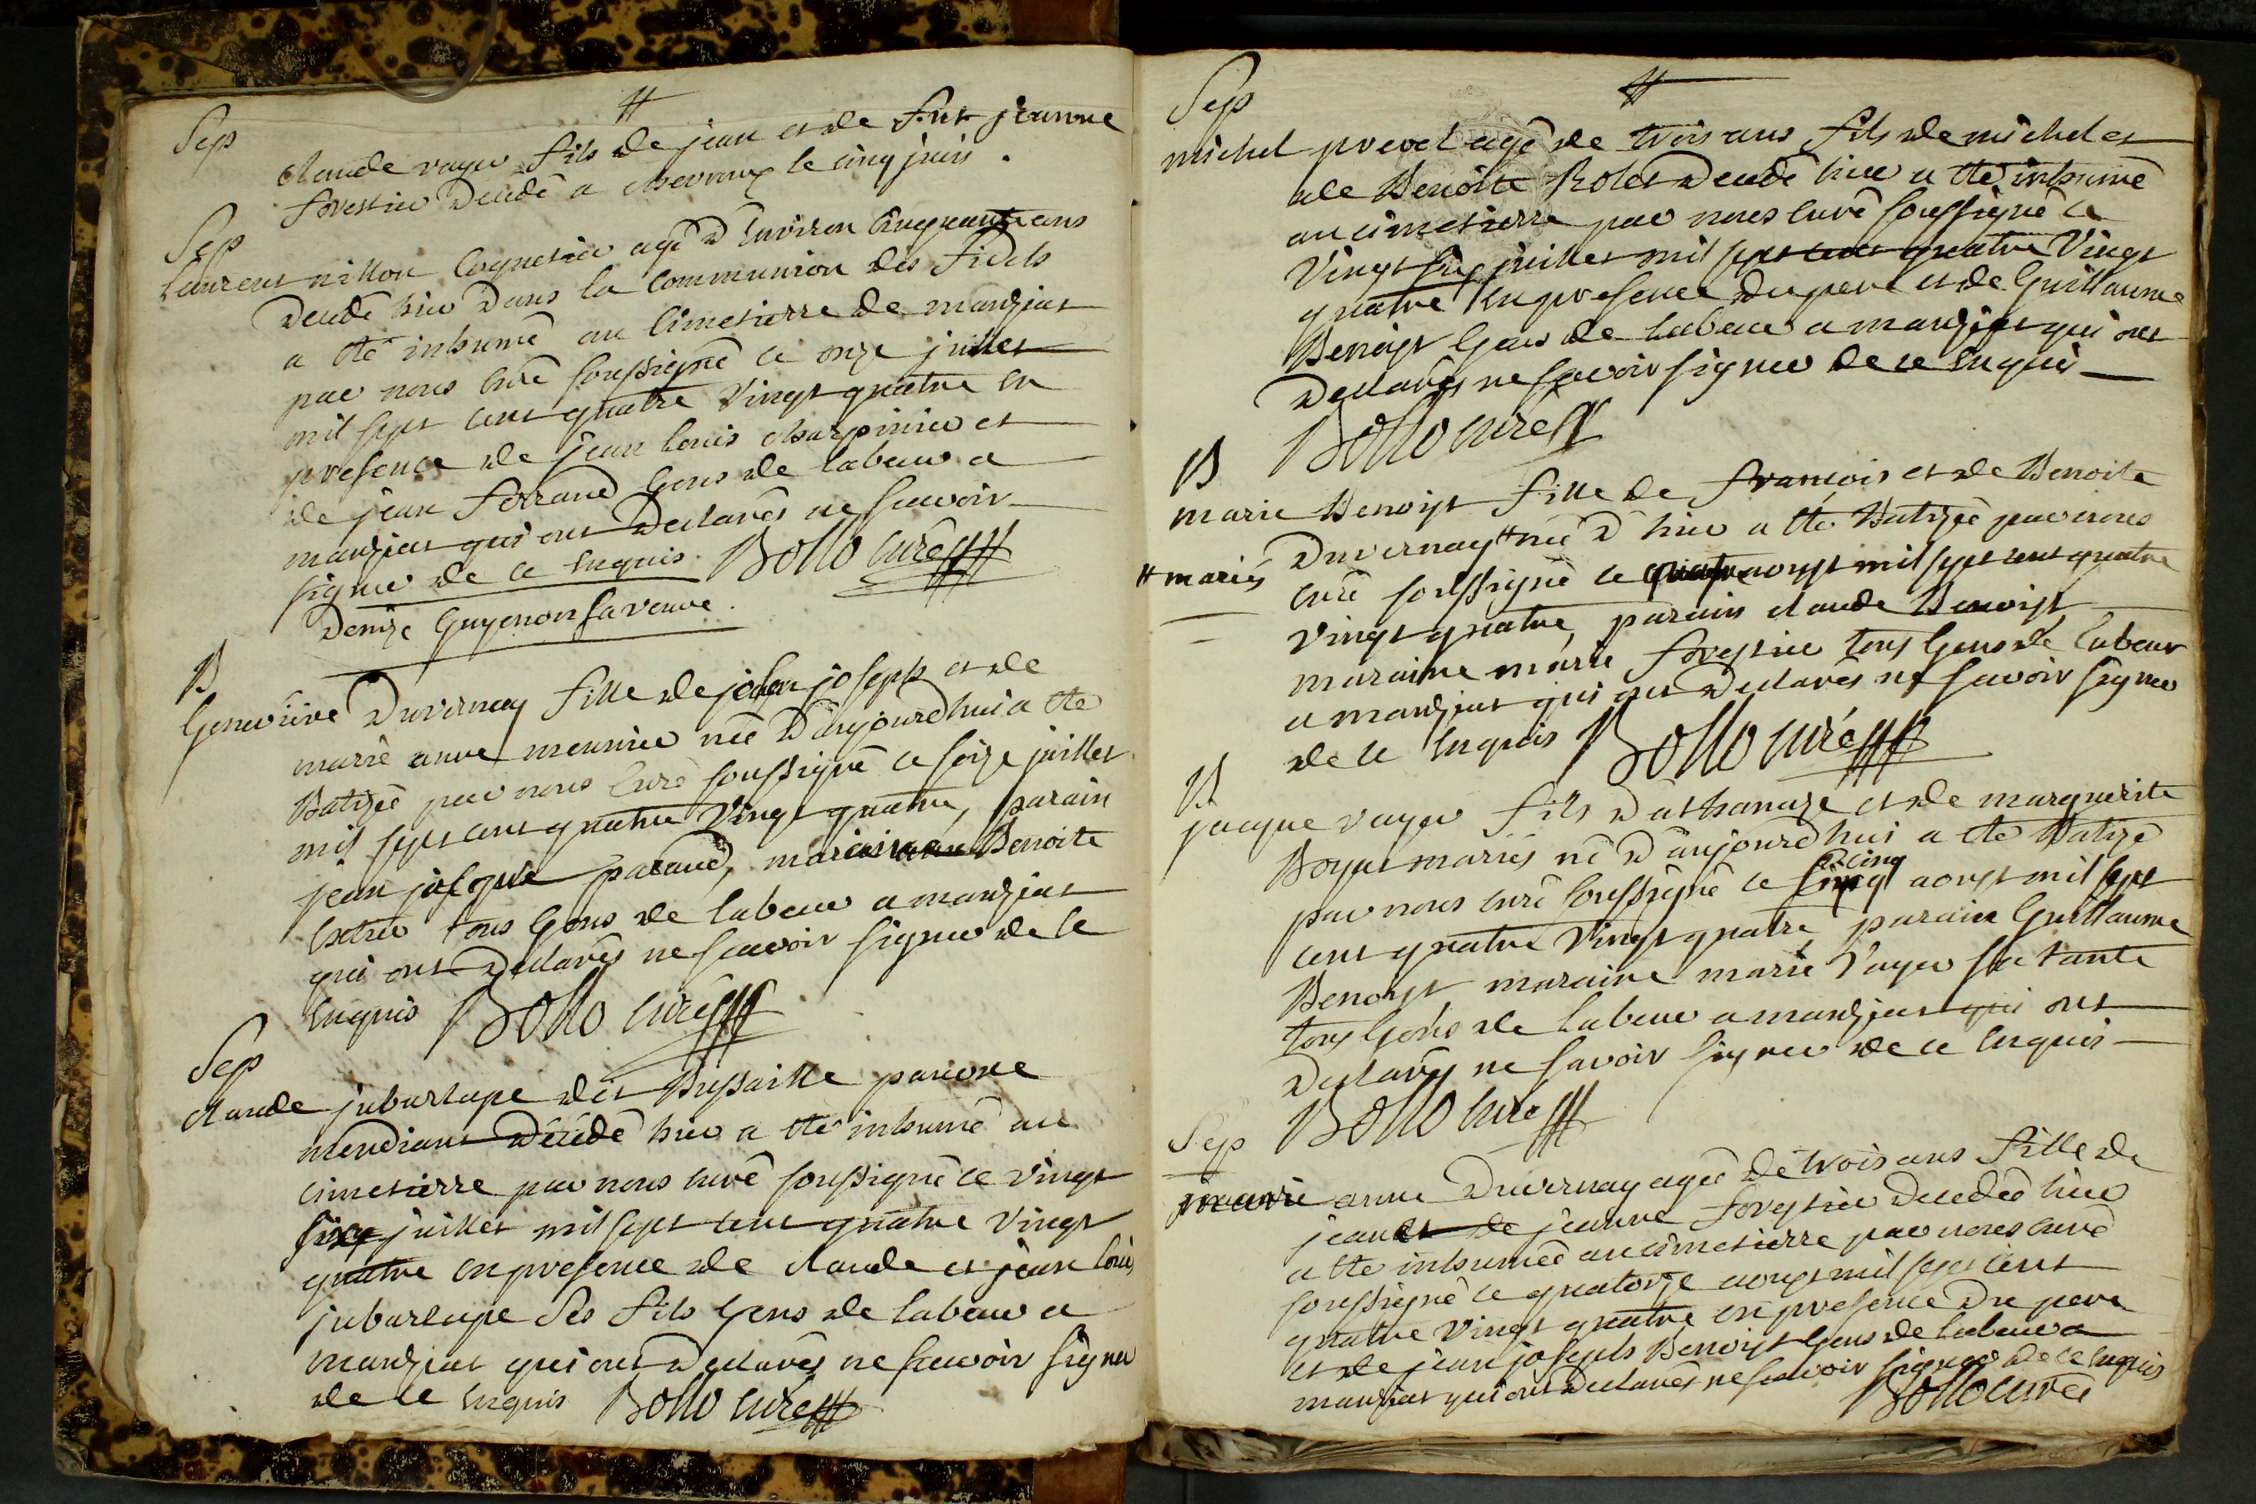 Sep
claude voyer fils de jean et de fut jeanne
forestier decedé a chevroux le cinq juin.
Sep
Laurent nillon coquetier agé d'environ cinquante ans
decedé hier dans la communion des fidels
a eté inhumé au cimetierre de manziat
par nous curé soussigné ce onze juillet
mil sept cent quatre vingt quatre en
presence de jean louis charpinier et
de jean ferrand gens de labeur a
manziat qui ont declarés ne scavoir
signer de ce enquis. Bollo curé
Denize Guyenon sa veuve.
B
Genevieve Duvernay fille de joseph et de
marie anne meunier née d'aujourd'hui a eté
Batizée par nous curé soussigné ce seize juillet
mil sept cent quatre vingt quatre, parain
jean joseph paraud, maraine Benoite
tous gens de labeur a manziat
qui ont declarés ne scavoir signer de ce
enquis Bollo curé
Sep
claude juburtupe dit Bussaille pauvre
mendiant decedé hier a eté inhumé au
cimetierre par nous curé soussigné ce vingt
six juillet mil sept cent quatre vingt
quatre en presence de claude et jean louis
juburtupe ses fils gens de labeur a
manziat qui ont declarés ne scavoir signer
de ce enquis Bollo curé
Sep
michel prevel agé de trois ans fils de michel et
de Benoite Rolet decedé hier a eté inhumé
au cimetierre par nous curé soussigné ce
vingt six juillet mil sept cent quatre vingt
quatre en presence du pere et de Guillaume
Benoist gens de labeur a manziat qui ont
declarés ne scavoir signer de ce enquis
Bollo curé
B
marie Benoist fille de francois et de Benoite
Duvernay # née d'hier a eté Batizée par nous
# mariés
curé soussigné ce quatre aoust mil sept cent quatre
vingt quatre, parain claude Benoist
maraine marie forestier tous gens de labeur
a manziat qui ont declarés ne scavoir signer
de ce enquis Bollo curé
B
jacque voyer fils d'athanaze et de marguerite
Boyat mariés né d'aujourd'hui a eté Batizé
par nous curé soussigné ce cinq aoust mil sept
cent quatre vingt quatre parain Guillaume
Benoist maraine marie voyer sa tante
tous gens de labeur a manziat qui ont
declarés ne savoir signer de ce enquis
Bollo curé
Sep
marie anne Duvernay agée de trois ans fille de
jean et de jeanne forestier decedée hier
a eté inhumée au cimetierre par nous curé
soussigné ce quatorze aoust mil sept cent
quatre vingt quatre en presence du pere
et de jean joseph Benoist gens de labeur a
manziat qui ont declarés ne scavoir signer de ce enquis
Bollo curé